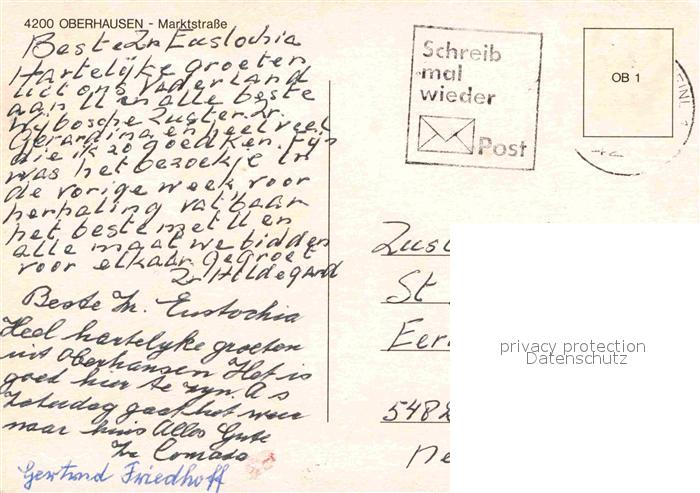 4200 OBERHAUSEN - Marktstraße
Beste Zr Eustochia
Hartelijke groeten
uit ons vaderland
aan U en alle beste
Wijbosche Zuster. Zr.
Gerardina, en veel veel
die ik zo goed ken. Fijn
was het bezoekje in
de vorige week, voor
herhaling vatbaar
het beste met U en
alle maat we bidden
voor elkaar gegroet
Zr Hildegard
Beste Zr. Eustochia
Heel hartelyke groeten
uit Oberhausen Het is
goed hier te zyn. A s
Zaterdag gaat het weer
naar huis Alles Gute
Zr Comada
Gertrud Friedhoff
Schreib
mal
wieder
Post
OB 1
Zus
St
Eer
5482
Ne
privacy protection
Datenschutz